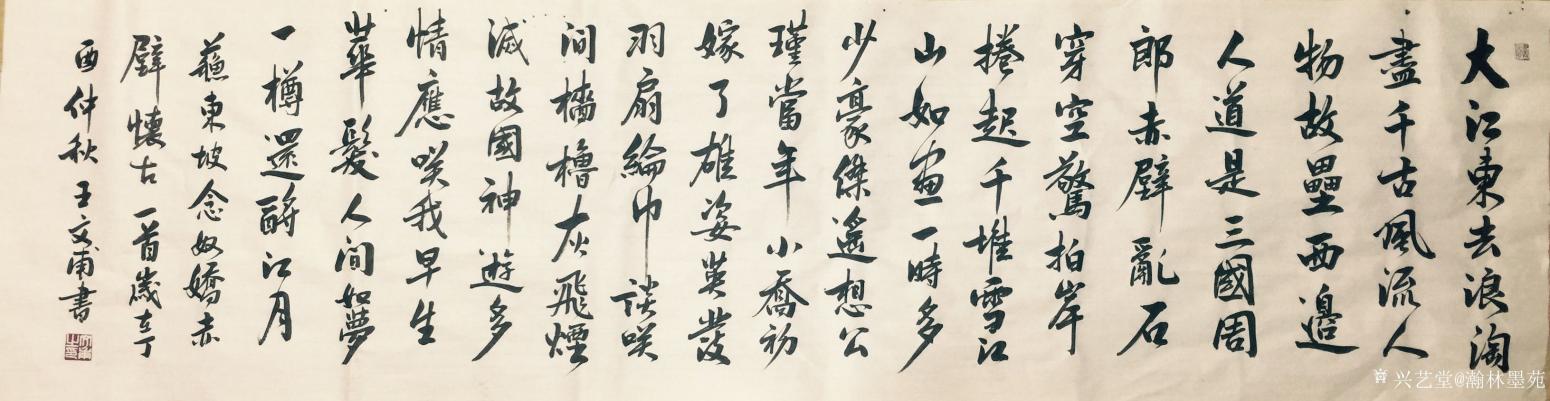 大江東去浪淘
盡千古風流人
物故壘西邊
人道是三國周
郎赤壁亂石
穿空驚拍岸
捲起千堆雪江
山如畫一時多
少豪傑遙想公
瑾當年小喬初
嫁了雄姿英發
羽扇綸巾談笑
間檣櫓灰飛煙
滅故國神遊多
情應笑我早生
華髮人間如夢
一樽還酹江月
蘇東坡念奴嬌赤
壁懷古一首歲在丁
酉仲秋王文甫書
兴艺堂@瀚林墨苑